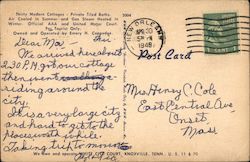 Thirty Modern Cottages - Private Tiled Baths
Air Cooled in Summer and Gas Steam Heated in
Winter. Official AAA and United Motor Court.
For Tourist Only.
Owned and Operated by Emery H.
Dear Ma,
We arrived here about
2:30 P.M. got our cottage
then went
riding around the
city.
It is a very large city
and hard to get to the
places wish to see.
Taking trip to
NEW ORLEANS
APR 30
5 PM
1948
Post Card
Mrs Henry C. Cole
East Central Ave
Onset
Mass
We own and COURT, KNOXVILLE, TENN. U. S. 11 & 70